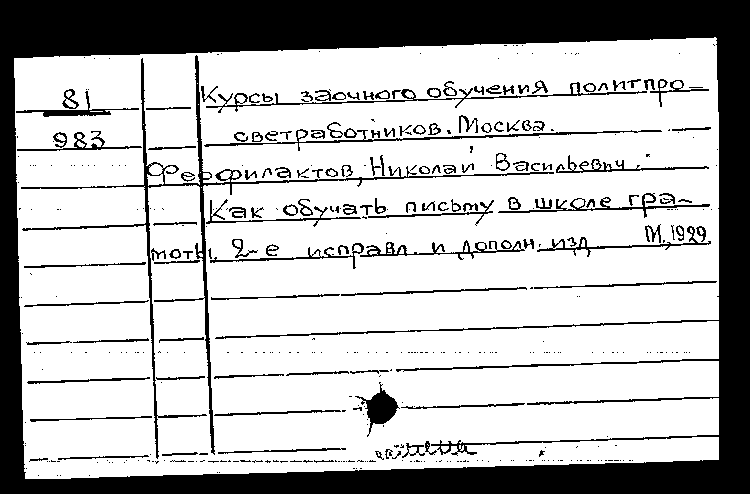 81
983
Курсы заочного обучения политпро-
светработников. Москва.
Феофилактов, Николай Васильевич.
Как обучать письму в школе гра-
моты. 2-е исправл. и дополн. изд М, 1929.